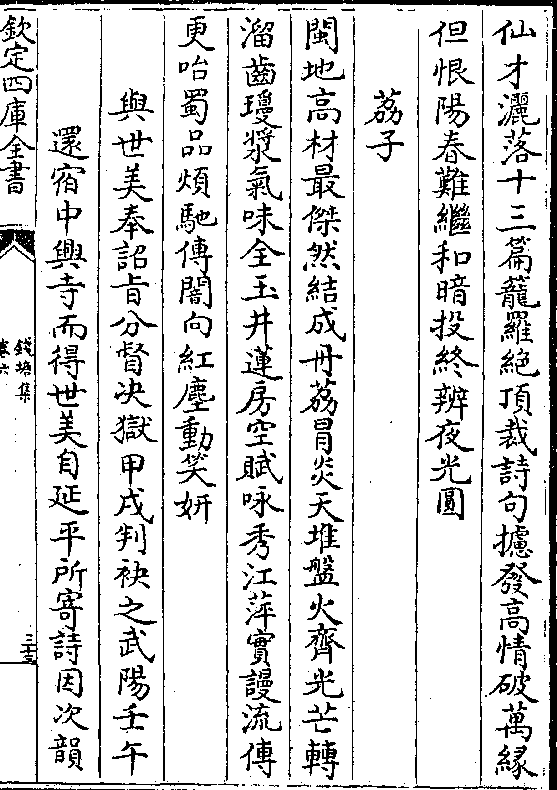 仙才灑落十三篇籠羅絶頂裁詩句攄發高情破萬縁
但恨陽春難繼和暗投終辨夜光圓
荔子
閩地高材最傑然結成丹荔冒炎天堆盤火齊光芒轉
溜齒瓊漿氣味全玉井蓮房空賦咏秀江萍實謾流傳
更咍蜀品煩馳傳闇向紅塵動笑妍
與世美奉詔㫖分督决獄甲戌判袂之武陽壬午
還宿中興寺而得世美自延平所寄詩因次韻
欽定四庫全書
錢塘集
卷六